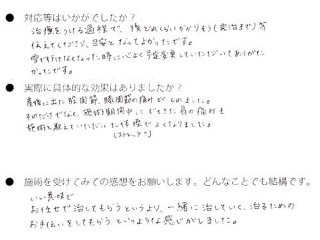 ● 対応等はいかがでしたか？
治療をうける過程で、後どれくらいかかりそう(完治まで)等
伝えてくださり、目安となってよかったです。
急で行けなくなった時に心よく予定変更していただいてありがた
かったです。
● 実際に具体的な効果はありましたか？
産後に出た股関節、膝関節の痛みがとれました。
それだけでなく、施術期間中にでてきた肩の痛みも
施術と教えていただいた体操でよくなりました。
(ストレッチ)
● 施術を受けてみての感想をお願いします。どんなことでも結構です。
いい意味で
お任せで治してもらうというより、一緒に治していく、治るための
お手伝いをしてもらうというような感じがしました。